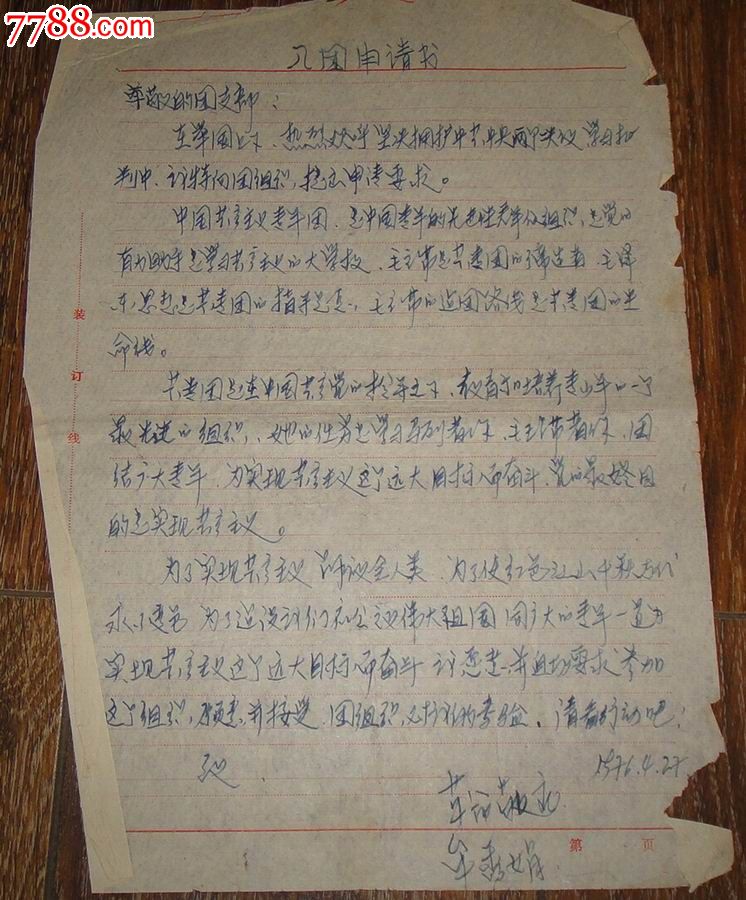 7788.com
入团申请书
尊敬的团支部：
在举国上下、热烈欢呼坚决拥护中共中央两个决议学习批
判中、我特向团组织，提出申请要求。
中国共产主义青年团，是中国青年的先进性青年组织，是党的
有力助手是学习共产主义的大学校、毛主席是共青团的缔造者、毛泽
东思想是共青团的指导 毛主席的建团路线是共青团的生
命线。
共青团是在中国共产党的领导之下、教育和培养青少年的一个
最先进的组织、她的任务是学习马列著作、毛主席著作、团
结广大青年、为实现共产主义这个远大目标而奋斗、党的最终目
的是实现共产主义。
为了实现共产主义解放全人类、为了使红色江山千秋万代
永不变色 为了建设我们 伟大祖国 同广大的青年一道为
实现共产主义这个远大目标而奋斗 我愿意并且 要求参加
这个组织，愿意并接受、团组织 对我的考验、请看行动吧！
致
1976.4.27
革命敬礼
牟秀娟
装
订
线
第 页